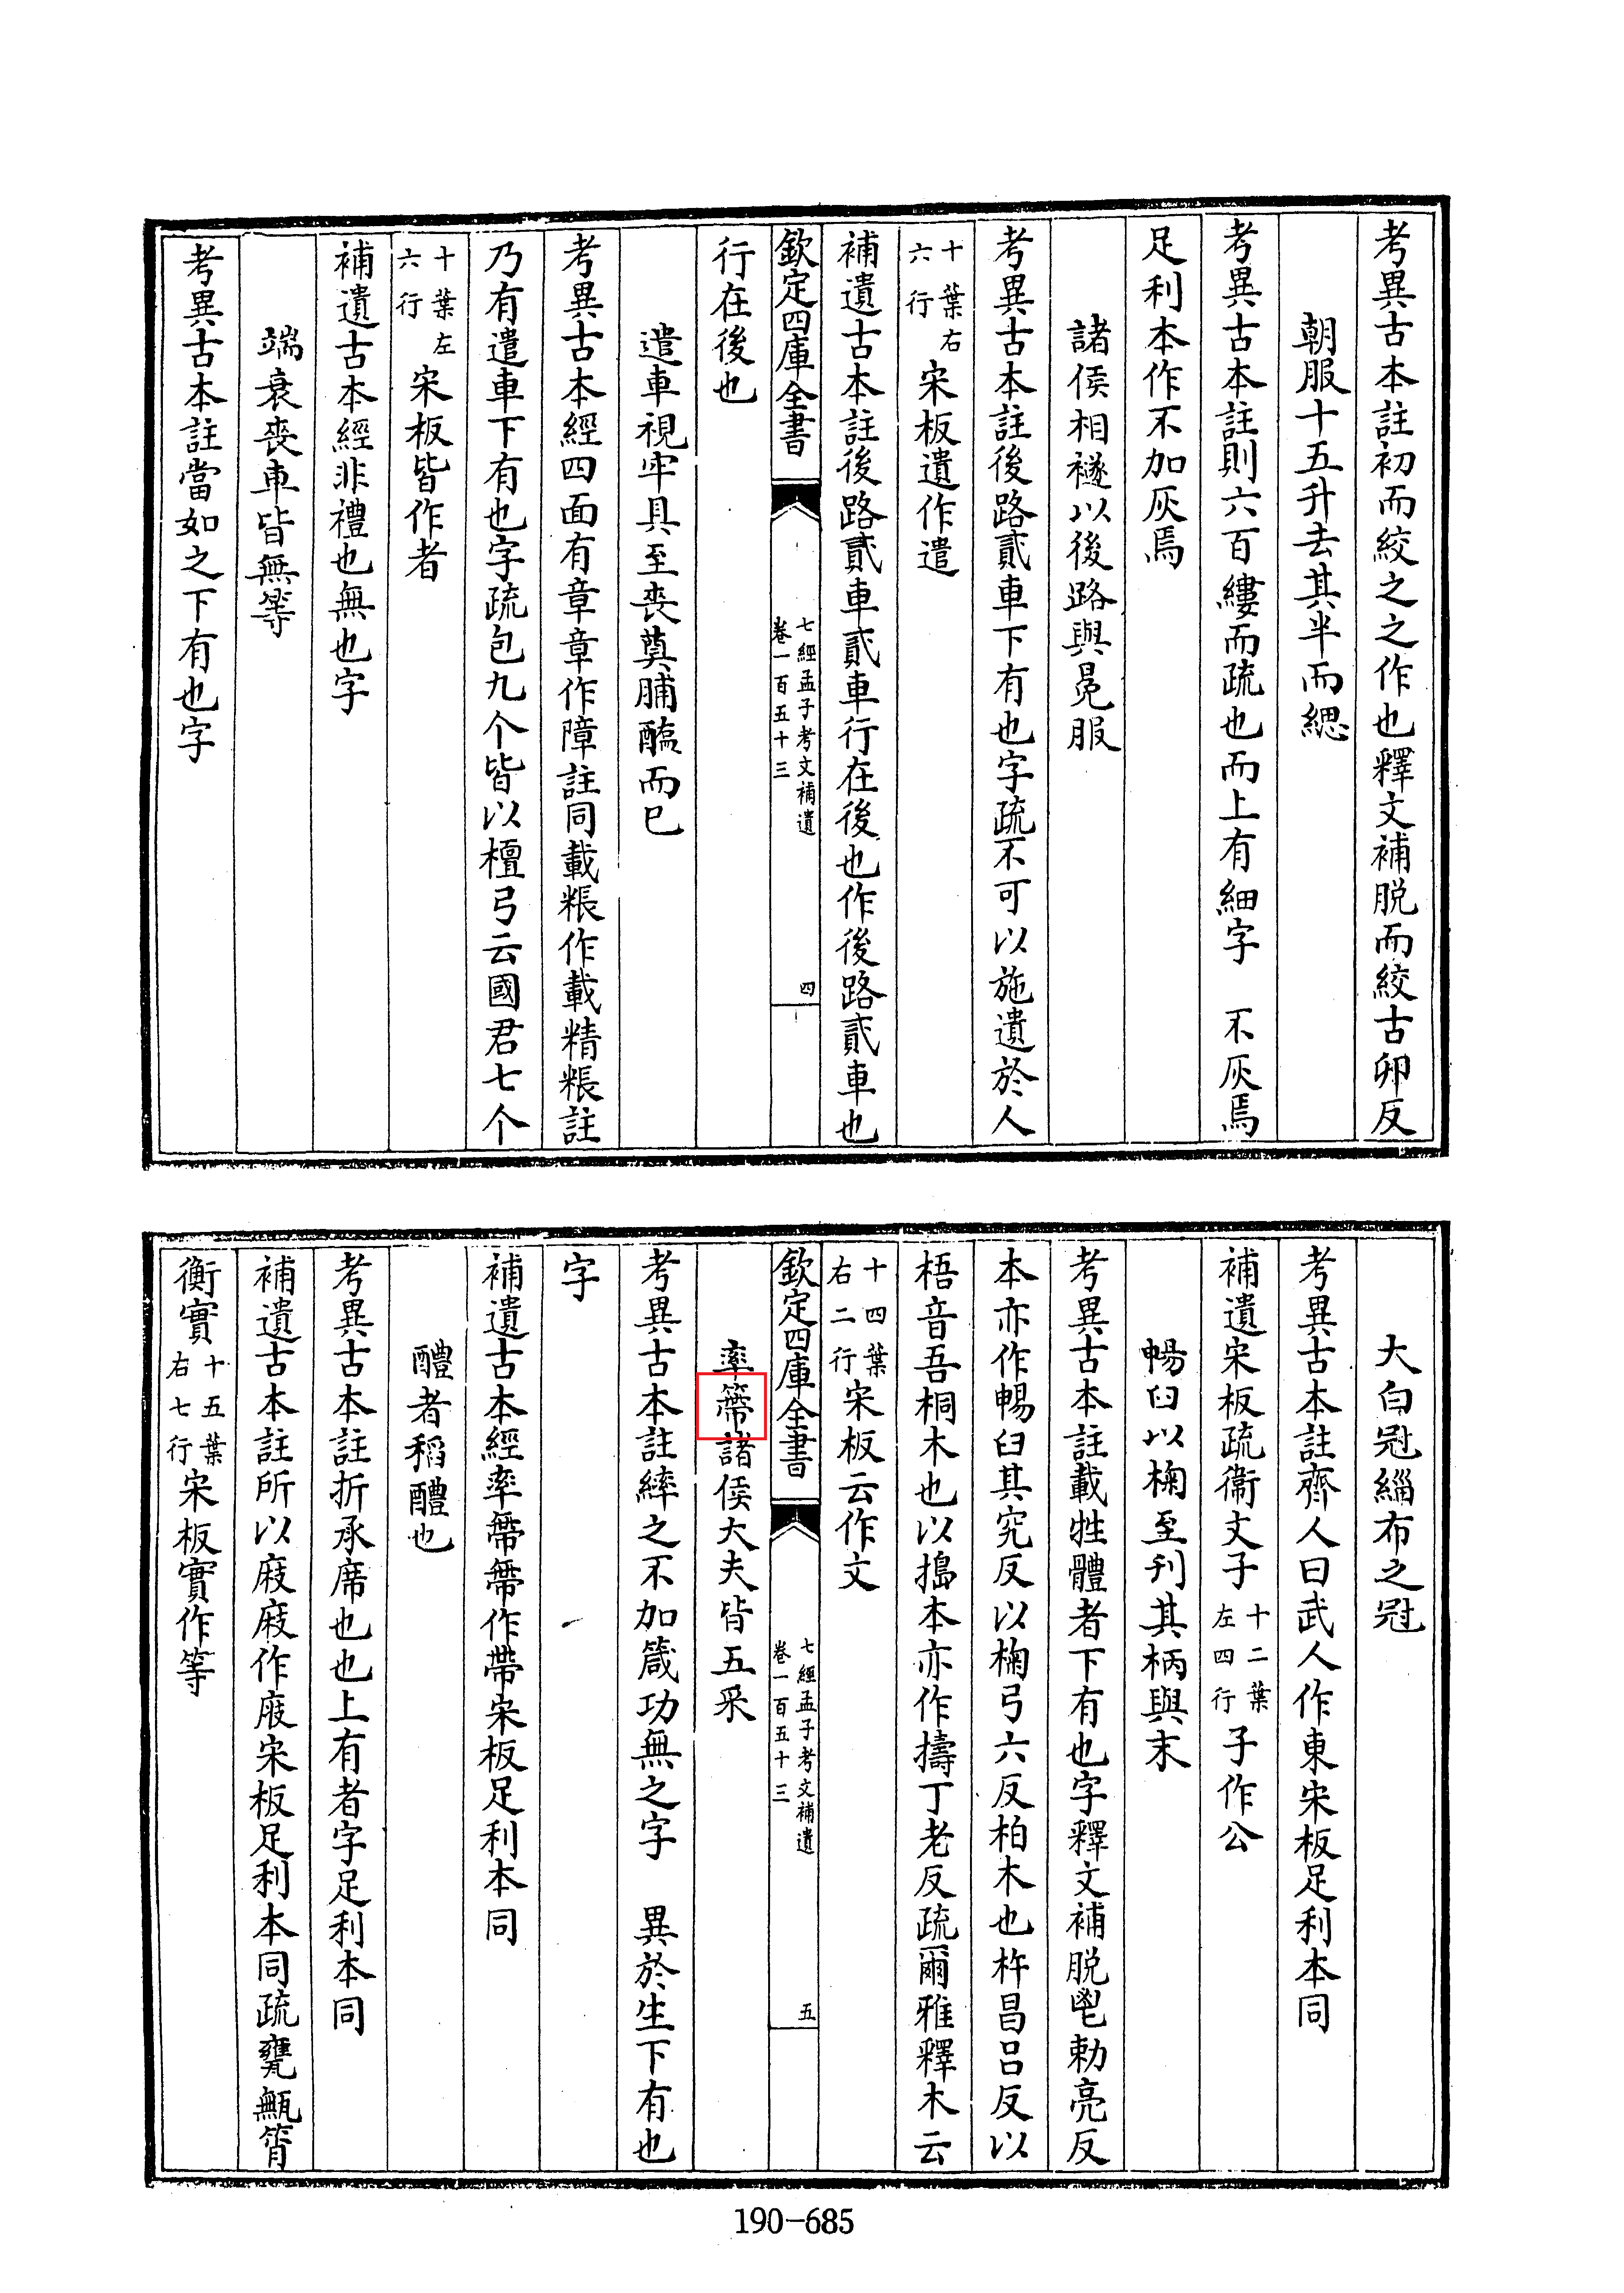 考異古本註初而絞之之作也釋文補脱而絞古卯反
朝服十五升去其半而緦
考異古本註則六百縷而疏也而上有細字　不灰焉
足利本作不加灰焉
諸侯相襚以後路與冕服
考異古本註後路貳車下有也字疏不可以施遺於人
十葉右六行宋板遺作遣
補遺古本註後路貳車貳車行在後也作後路貳車也
欽定四庫全書
七經孟子考文補遺
卷一百五十三
四
行在後也
遣車視牢具至喪奠脯醢而已
考異古本經四面有章章作障註同載粻作載精粻註
乃有遣車下有也字疏包九个皆以檀弓云國君七个
十葉左六行宋板皆作者
補遺古本經非禮也無也字
端衰喪車皆無等
考異古本註當如之下有也字
大白冠緇布之冠
考異古本註齊人曰武人作東宋板足利本同
補遺宋板疏衞文子十二葉左四行子作公
暢臼以椈至刊其柄與末
考異古本註載牲體者下有也字釋文補脱鬯勅亮反
本亦作暢臼其究反以椈弓六反柏木也杵昌呂反以
梧音吾桐木也以搗本亦作擣丁老反疏爾雅釋木云
十四葉右二行宋板云作文
欽定四庫全書
七經孟子考文補遺
卷一百五十三
五
率諸侯大夫皆五采
考異古本註繂之不加箴功無之字　異於生下有也
字
補遺古本經率作帶宋板足利本同
醴者稻醴也
考異古本註折承席也也上有者字足利本同
補遺古本註所以庪庪作庪宋板足利本同疏甕甒筲
衡實十五葉右七行宋板實作等
190-685